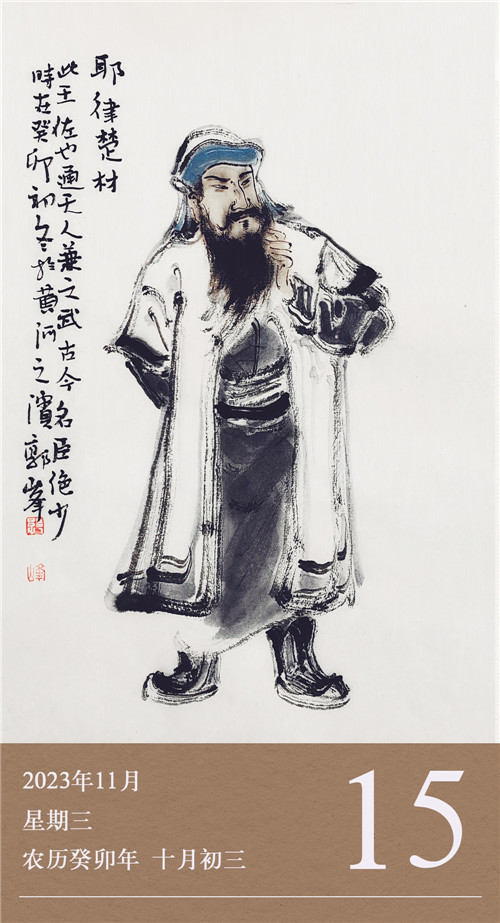 耶律楚材
此王佐也通天人兼文武古今名臣绝少
時在癸卯初冬於黄河之濱郭峰
2023年11月
星期三
农历癸卯年 十月初三
15